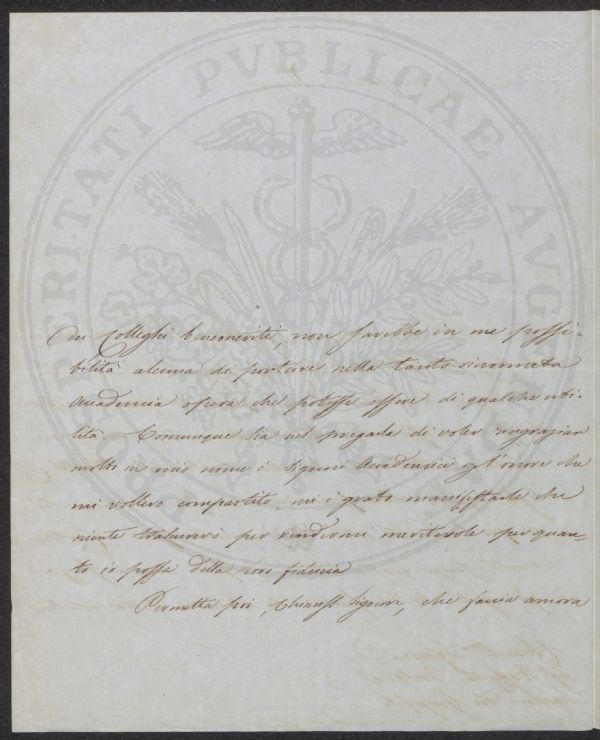 PROSPERITATI PVBLICAE AVGENDAE
dei Colleghi benemeriti, non sarebbe in me possi-
bilità alcuna di portare nella tanto rinomata
Accademia opera che potesse essere di qualche uti-
lità. Comunque sia nel pregarla di voler ringraziar
molto in mio nome i Signori Accademici per l'onore che
mi vollero compartito, mi è grato manifestarle che
niente tralascerò per rendermi meritevole per quan-
to io possa della loro fiducia
Permetta poi, Chiariss. Signore, che faccia ancora